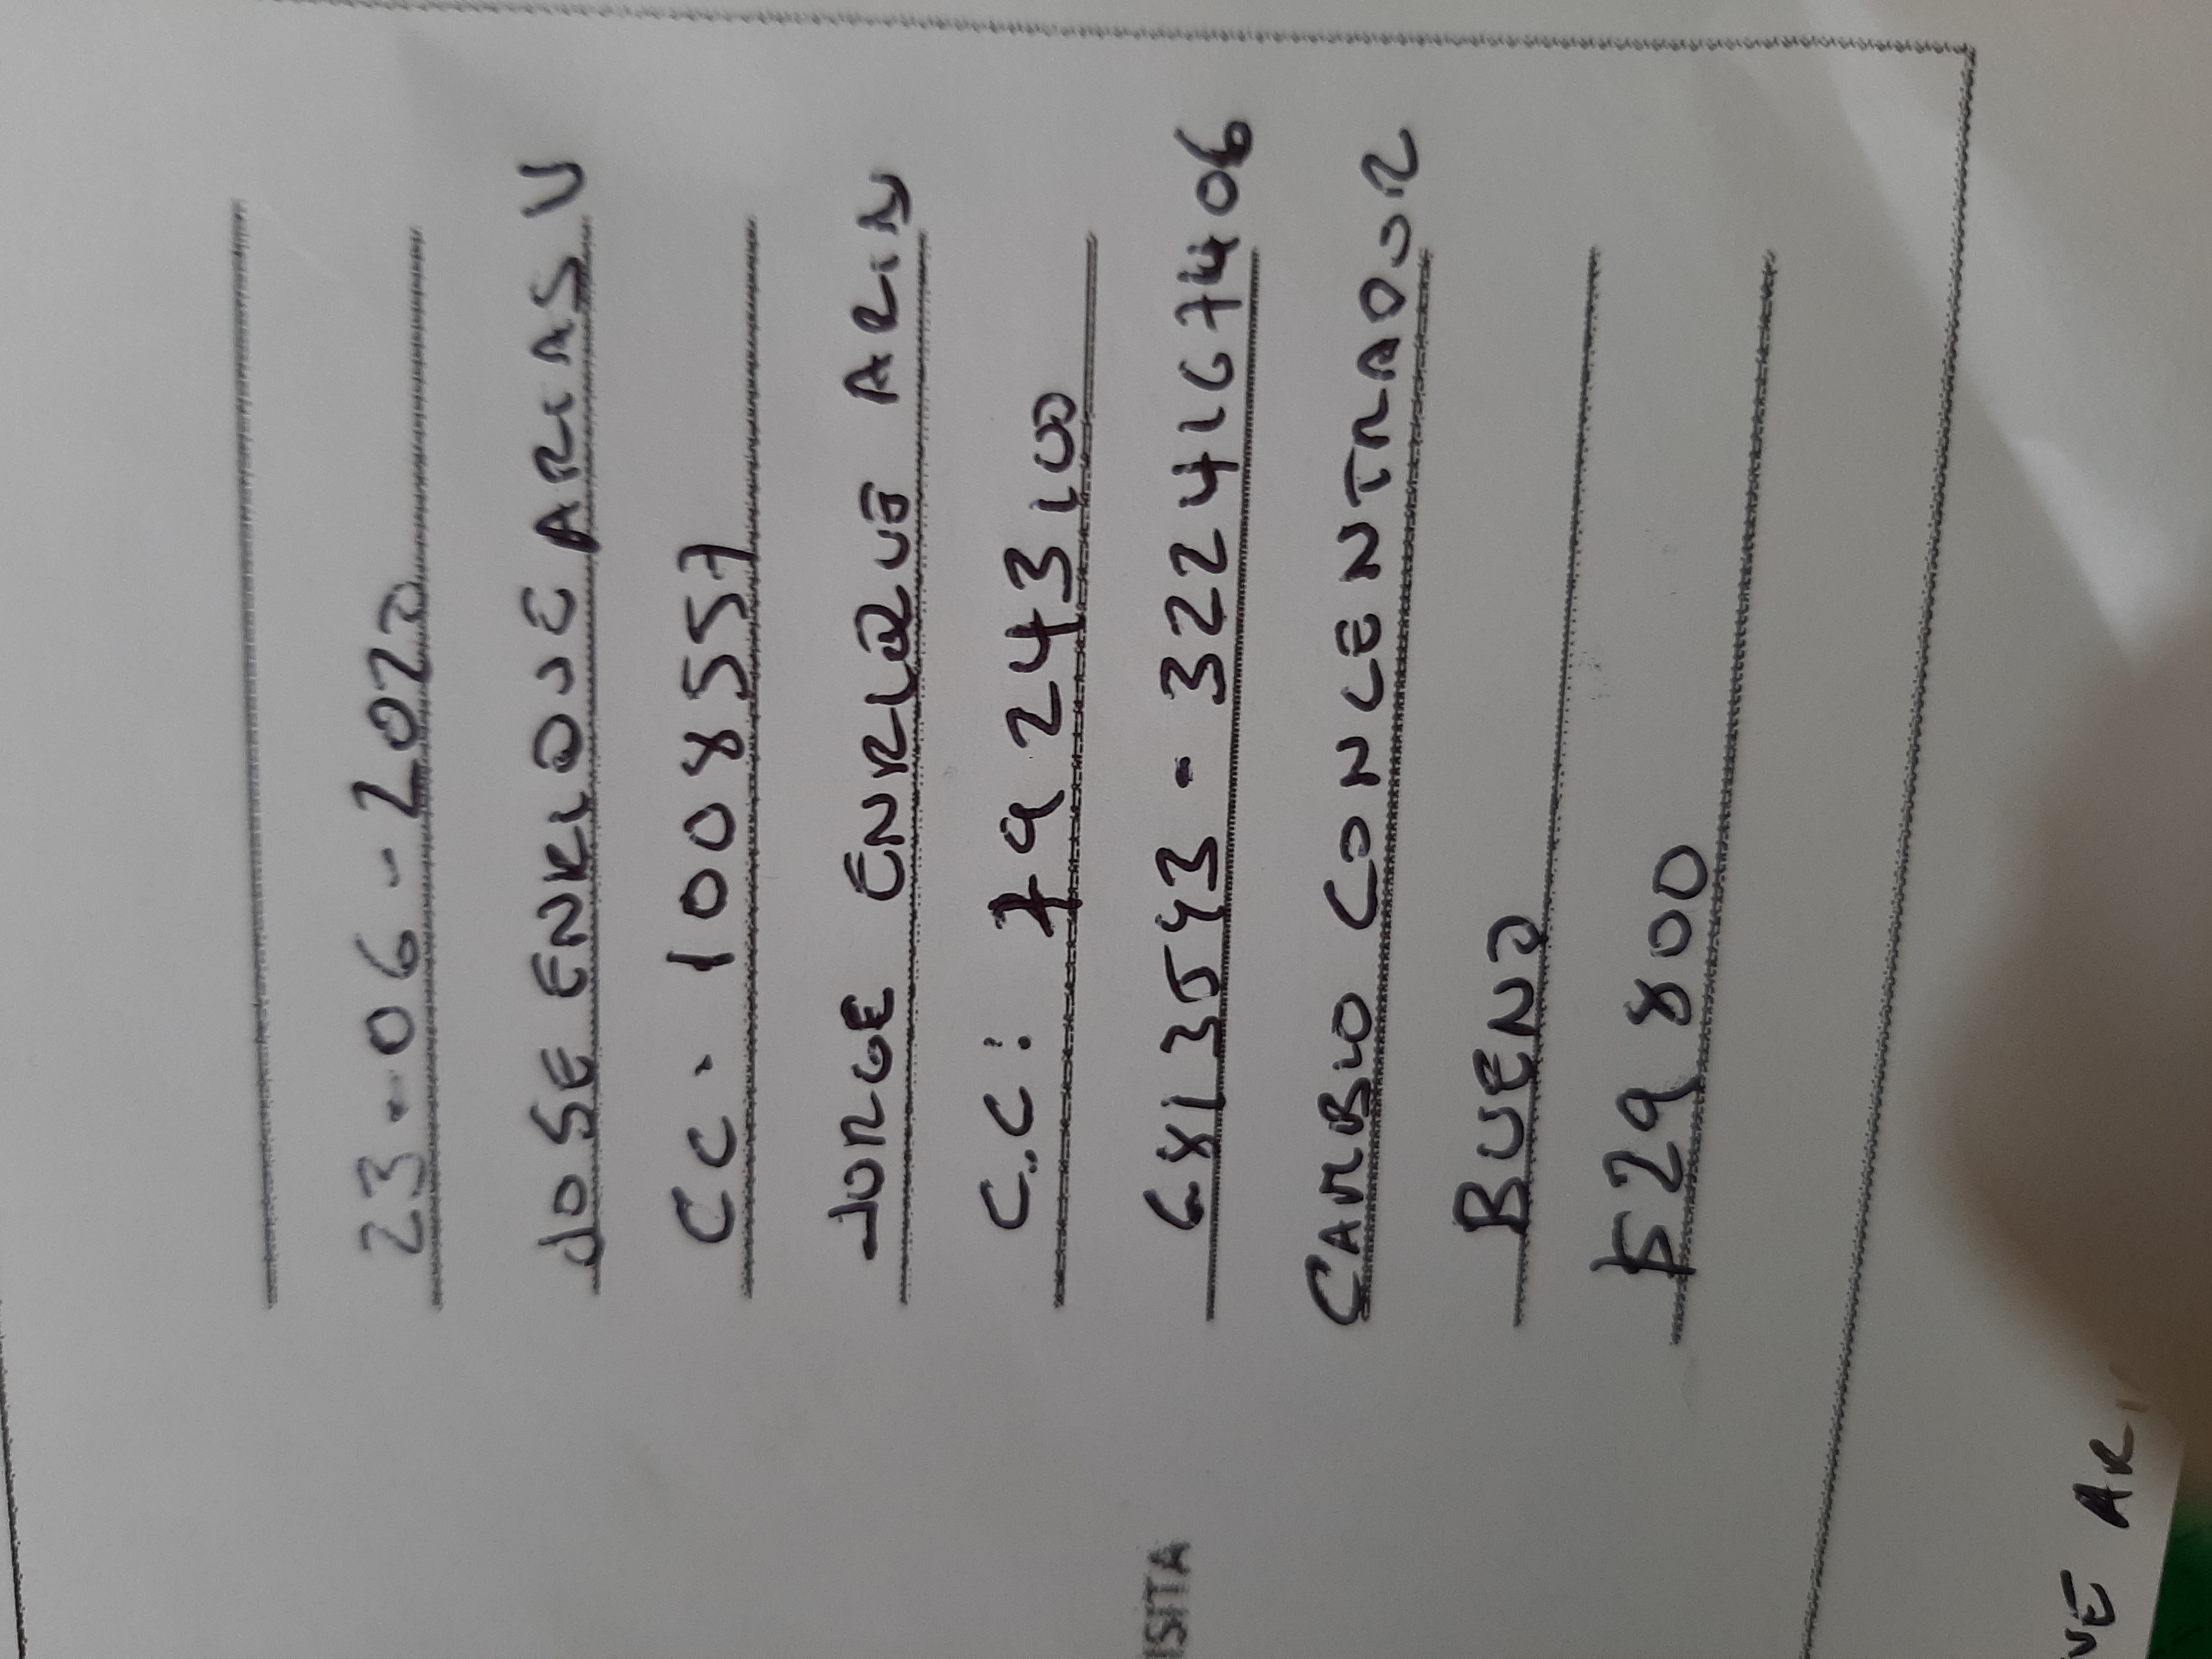 23-06-2020
JOSE ENRIQUE ARIAS V
CC. 1008557
JORGE ENRIQUE ARIAS
C.C: 79243100
6813543 - 3224167406
CAMBIO CONCENTRADOR
BUENO
529800
ISITA
UE ARI